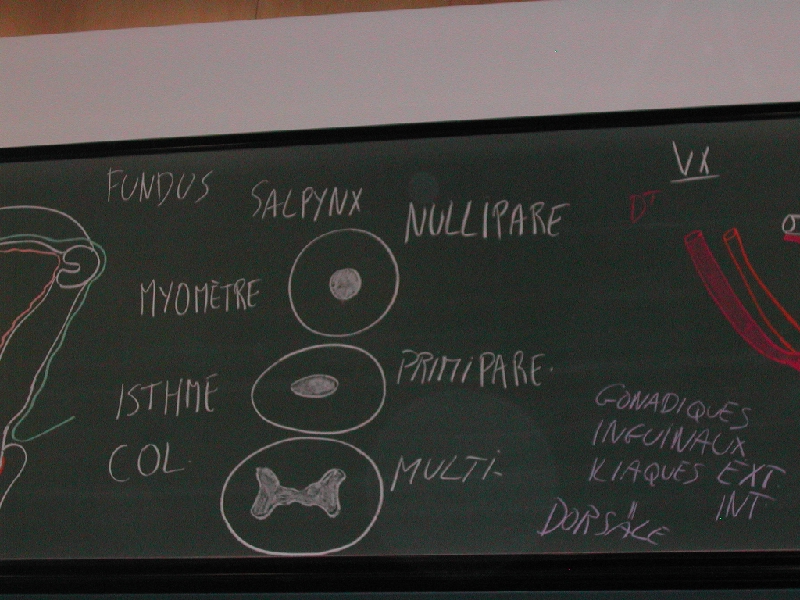 FUNDUS
SALPYNX
MYOMÈTRE
ISTHME
COL.
NULLIPARE
PRIMIPARE.
MULTI-
VX
DT
GONADIQUES
INGUINAUX
ILIAQUES EXT.
INT
DORSALE